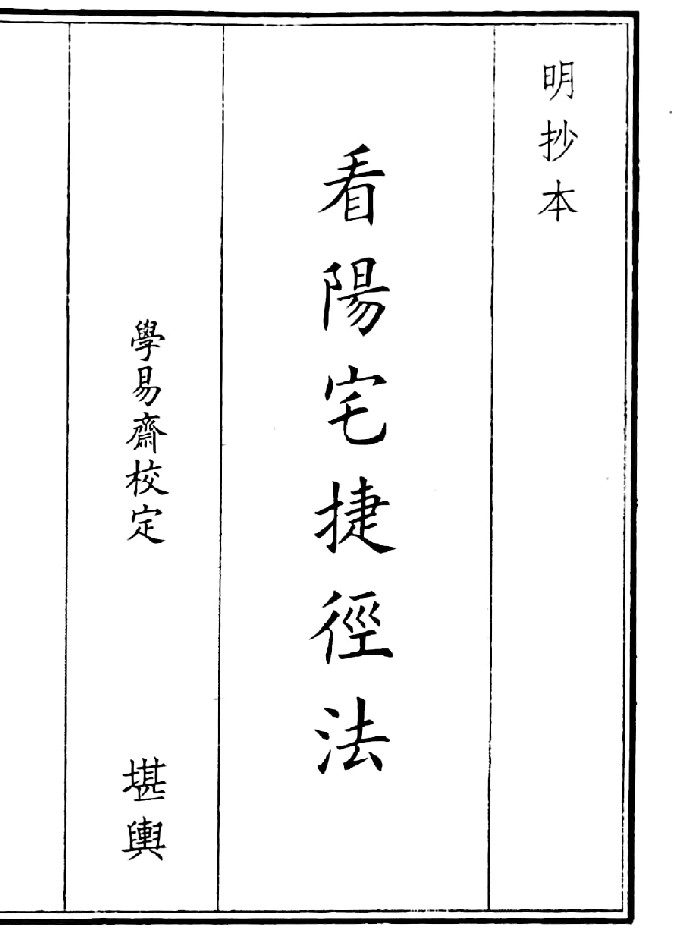 明抄本
看陽宅捷徑法
學易齋校定
堪輿